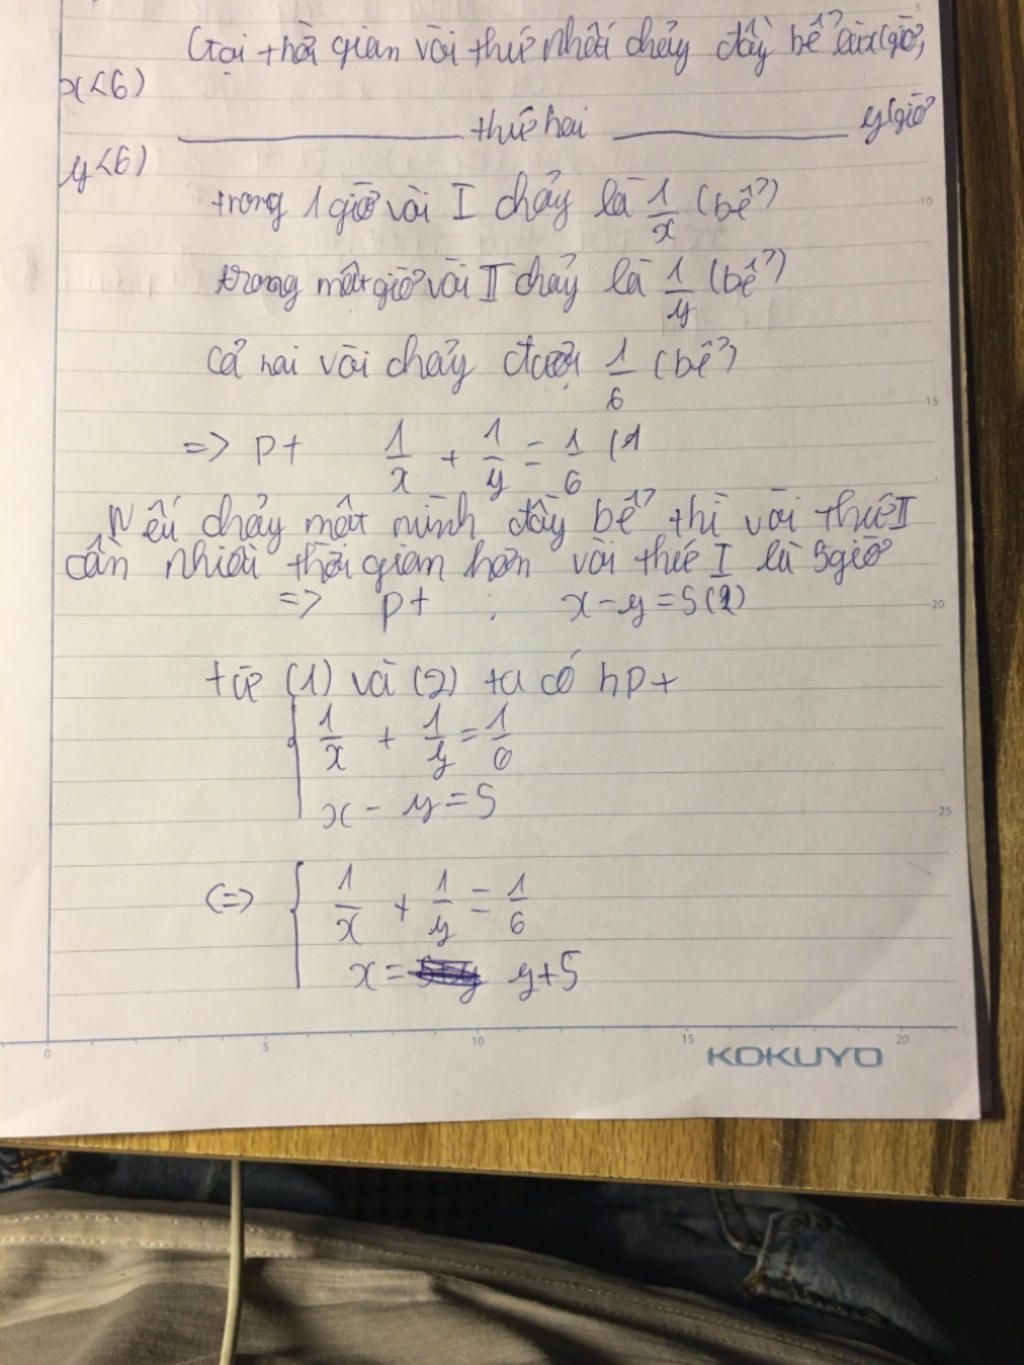 Gọi thời gian vòi thứ nhất chảy đầy bể là x (giờ,
x<6)
thứ hai y (giờ
y<6)
trong 1 giờ vòi I chảy là 1/x (bể)
trong một giờ vòi II chảy là 1/y (bể)
10
Cả hai vòi chảy được 1/6 (bể)
15
=> pt 1/x + 1/y = 1/6 (1
Nếu chảy một mình đầy bể thì vòi thứ II
cần nhiều thời gian hơn vòi thứ I là 5 giờ
=> pt : x - y = 5 (2)
20
từ (1) và (2) ta có hpt
1/x + 1/y = 1/6
x - y = 5
25
(=) 1/x + 1/y = 1/6
x = y + 5
0 5 10 15 20
KOKUYO